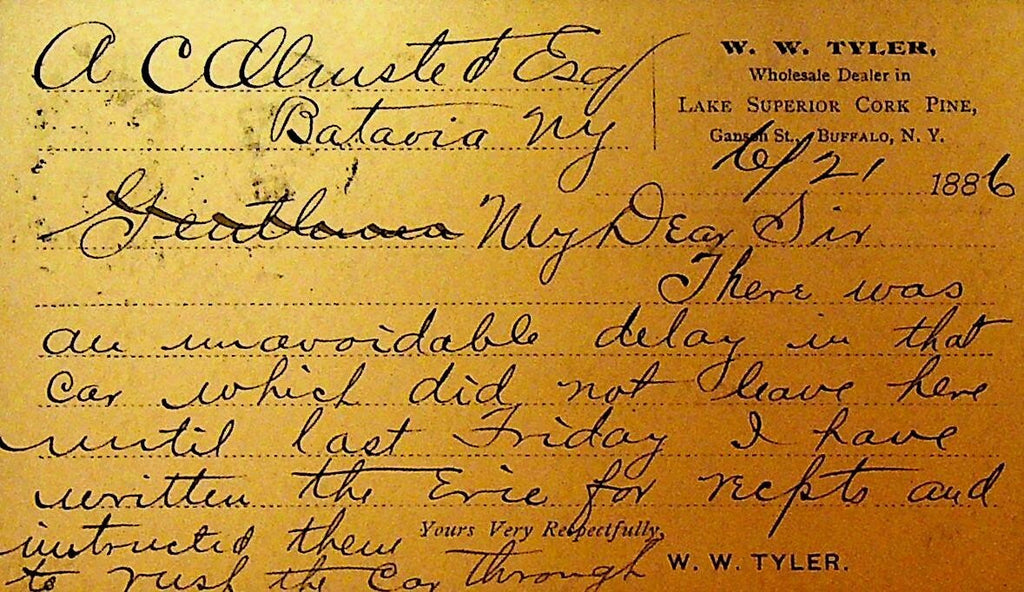 A C Olmsted Esq
Batavia Ny
W. W. TYLER,
Wholesale Dealer in
LAKE SUPERIOR CORK PINE,
Ganson St., BUFFALO, N. Y.
6/21 1886
Gentlemen My Dear Sir
There was
an unavoidable delay in that
car which did not leave here
until last Friday I have
written the Erie for recpts and
instructed them
to rush the car through
Yours Very Respectfully,
W. W. TYLER.